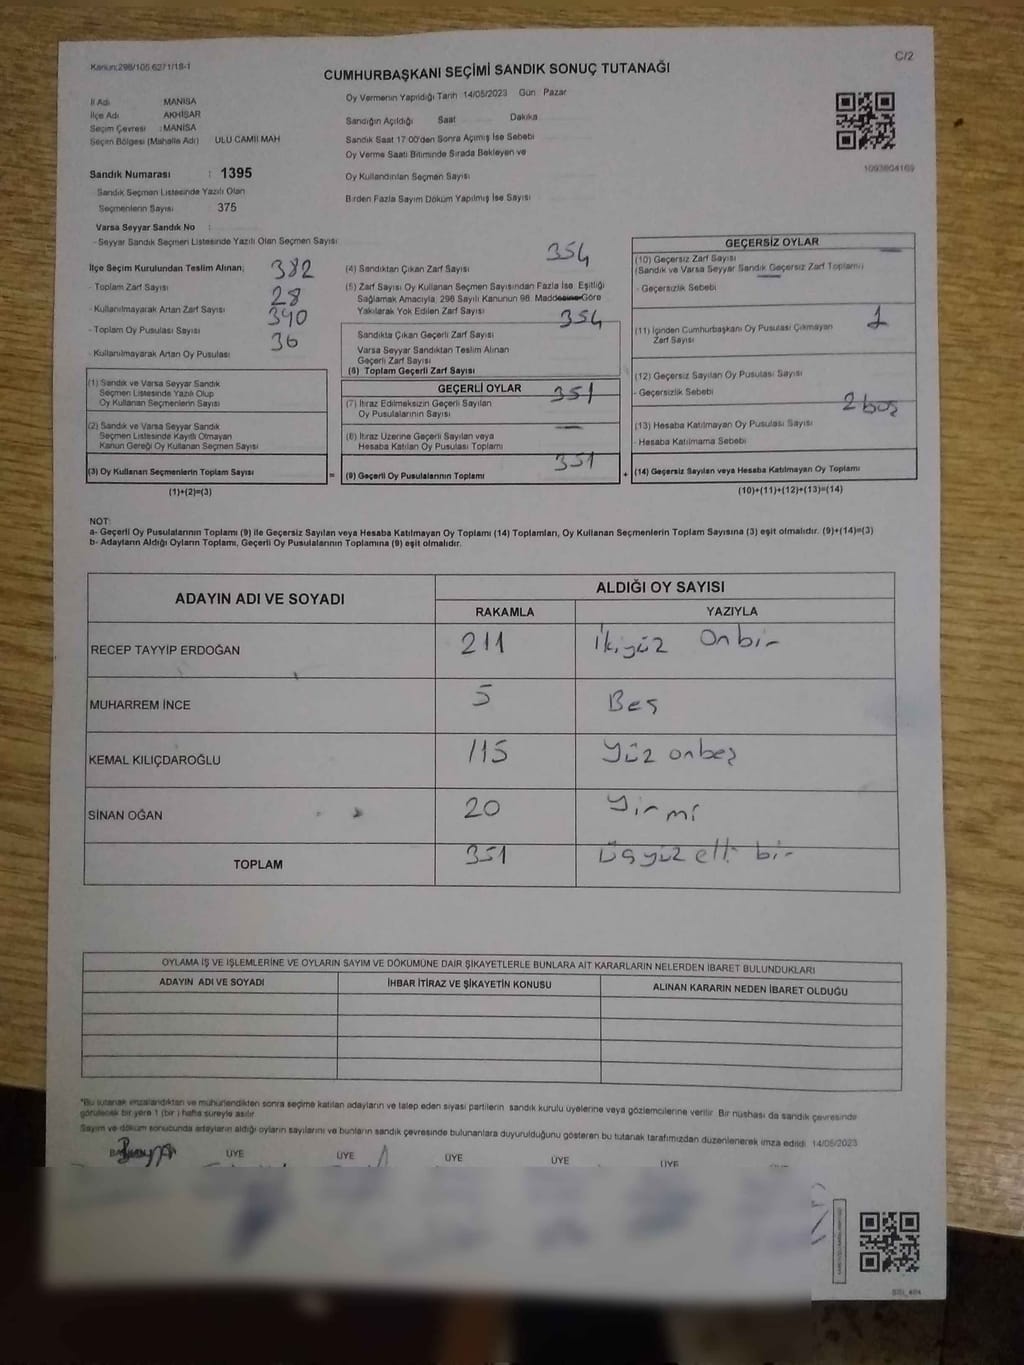 Kanun:298/105 6271/18-1
C/2
CUMHURBAŞKANI SEÇİMİ SANDIK SONUÇ TUTANAĞI
İl Adı MANİSA
İlçe Adı AKHİSAR
Seçim Çevresi : MANİSA
Seçim Bölgesi (Mahalle Adı) ULU CAMİİ MAH
Sandık Numarası : 1395
Sandık Seçmen Listesinde Yazılı Olan
Seçmenlerin Sayısı : 375
Varsa Seyyar Sandık No
- Seyyar Sandık Seçmen Listesinde Yazılı Olan Seçmen Sayısı
Oy Vermenin Yapıldığı Tarih 14/05/2023 Gün Pazar
Sandığın Açıldığı Saat Dakika
Sandık Saat 17:00'den Sonra Açımış İse Sebebi
Oy Verme Saati Bitiminde Sırada Bekleyen ve
Oy Kullandırılan Seçmen Sayısı
Birden Fazla Sayım Döküm Yapılmış İse Sayısı
1093804169
İlçe Seçim Kurulundan Teslim Alınan; 382
- Toplam Zarf Sayısı 28
- Kullanılmayarak Artan Zarf Sayısı 390
- Toplam Oy Pusulası Sayısı 36
- Kullanılmayarak Artan Oy Pusulası
(1) Sandık ve Varsa Seyyar Sandık
Seçmen Listesinde Yazılı Olup
Oy Kullanan Seçmenlerin Sayısı
(2) Sandık ve Varsa Seyyar Sandık
Seçmen Listesinde Kayıtlı Olmayan
Kanun Gereği Oy Kullanan Seçmen Sayısı
(3) Oy Kullanan Seçmenlerin Toplam Sayısı =
(1)+(2)=(3)
354
(4) Sandıktan Çıkan Zarf Sayısı
(5) Zarf Sayısı Oy Kullanan Seçmen Sayısından Fazla İse, Eşitliği
Sağlamak Amacıyla, 298 Sayılı Kanunun 98. Maddesine Göre
Yakılarak Yok Edilen Zarf Sayısı 354
Sandıkta Çıkan Geçerli Zarf Sayısı
Varsa Seyyar Sandıktan Teslim Alınan
Geçerli Zarf Sayısı
(6) Toplam Geçerli Zarf Sayısı
GEÇERLİ OYLAR
(7) İtiraz Edilmeksizin Geçerli Sayılan 351
Oy Pusulalarının Sayısı
(8) İtiraz Üzerine Geçerli Sayılan veya —
Hesaba Katılan Oy Pusulası Toplamı
(9) Geçerli Oy Pusulalarının Toplamı 351 +
GEÇERSİZ OYLAR —
(10) Geçersiz Zarf Sayısı
(Sandık ve Varsa Seyyar Sandık Geçersiz Zarf Toplamı)
- Geçersizlik Sebebi
(11) İçinden Cumhurbaşkanı Oy Pusulası Çıkmayan 1
Zarf Sayısı
(12) Geçersiz Sayılan Oy Pusulası Sayısı
- Geçersizlik Sebebi 2 boş
(13) Hesaba Katılmayan Oy Pusulası Sayısı
- Hesaba Katılmama Sebebi
(14) Geçersiz Sayılan veya Hesaba Katılmayan Oy Toplamı
(10)+(11)+(12)+(13)=(14)
NOT:
a- Geçerli Oy Pusulalarının Toplamı (9) ile Geçersiz Sayılan veya Hesaba Katılmayan Oy Toplamı (14) Toplamları, Oy Kullanan Seçmenlerin Toplam Sayısına (3) eşit olmalıdır. (9)+(14)=(3)
b- Adayların Aldığı Oyların Toplamı, Geçerli Oy Pusulalarının Toplamına (9) eşit olmalıdır.
ADAYIN ADI VE SOYADI ALDIĞI OY SAYISI
RAKAMLA YAZIYLA
RECEP TAYYİP ERDOĞAN 211 İkiyüz Onbir
MUHARREM İNCE 5 Beş
KEMAL KILIÇDAROĞLU 115 Yüz onbeş
SİNAN OĞAN 20 Yirmi
TOPLAM 351 Üçyüz elli bir
OYLAMA İŞ VE İŞLEMLERİNE VE OYLARIN SAYIM VE DÖKÜMÜNE DAİR ŞİKAYETLERLE BUNLARA AİT KARARLARIN NELERDEN İBARET BULUNDUKLARI
ADAYIN ADI VE SOYADI İHBAR İTİRAZ VE ŞİKAYETİN KONUSU ALINAN KARARIN NEDEN İBARET OLDUĞU
*Bu tutanak imzalandıktan ve mühürlendikten sonra seçime katılan adayların ve talep eden siyasi partilerin sandık kurulu üyelerine veya gözlemcilerine verilir. Bir nüshası da sandık çevresinde
görülecek bir yere 1 (bir) hafta süreyle asılır.
Sayım ve döküm sonucunda adayların aldığı oyların sayılarını ve bunların sandık çevresinde bulunanlara duyurulduğunu gösteren bu tutanak tarafımızdan düzenlenerek imza edildi. 14/05/2023
BAŞKAN ÜYE ÜYE ÜYE ÜYE ÜYE ÜYE